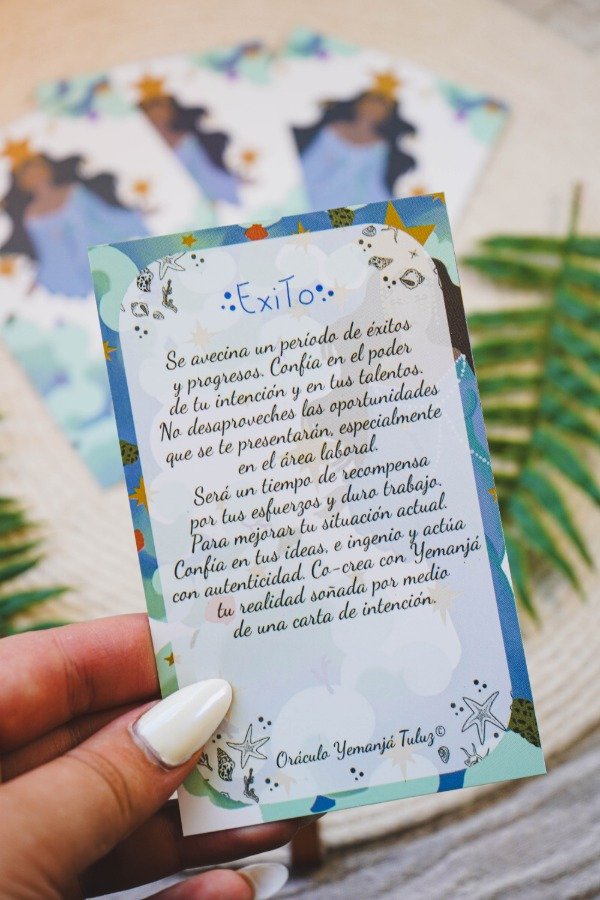 ExiTo
Se avecina un período de éxitos
y progresos. Confía en el poder
de tu intención y en tus talentos.
No desaproveches las oportunidades
que se te presentarán, especialmente
en el área laboral.
Será un tiempo de recompensa
por tus esfuerzos y duro trabajo.
Para mejorar tu situación actual.
Confía en tus ideas, e ingenio y actúa
con autenticidad. Co-crea con Yemanjá
tu realidad soñada por medio
de una carta de intención.
Oráculo Yemanjá Tuluz©